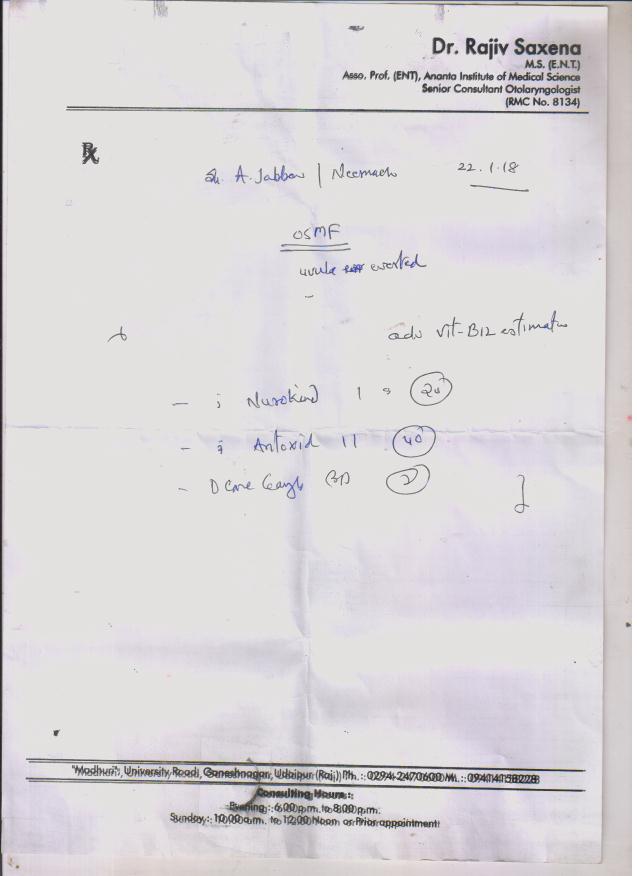 Dr. Rajiv Saxena
M.S. (E.N.T.)
Asso. Prof. (ENT), Ananta Institute of Medical Science
Senior Consultant Otolaryngologist
(RMC No. 8134)
Rx
A. Jabbar | Neemach 22.1.18
OSMF
uvula everted
adv Vit-B12 estimation
- Nurokind 1 20
- Antoxid 11 40
- D BD 2
"Madhuri", University Road, Ganeshnagar, Udaipur (Raj.) Ph. : 0294-2470600 M. : 09414158228
Consulting Hours :
Evening : 6.00 p.m. to 8.00 p.m.
Sunday : 10.00 a.m. to 12.00 Noon or Prior appointment